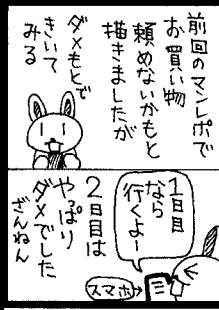 前回のマンレポで
お買い物
頼めないかもと
描きましたが
ダメもとで
きいて
みる
1日目
なら
行くよー
スマホ
2日目は
やっぱり
ダメでした
ざんねん